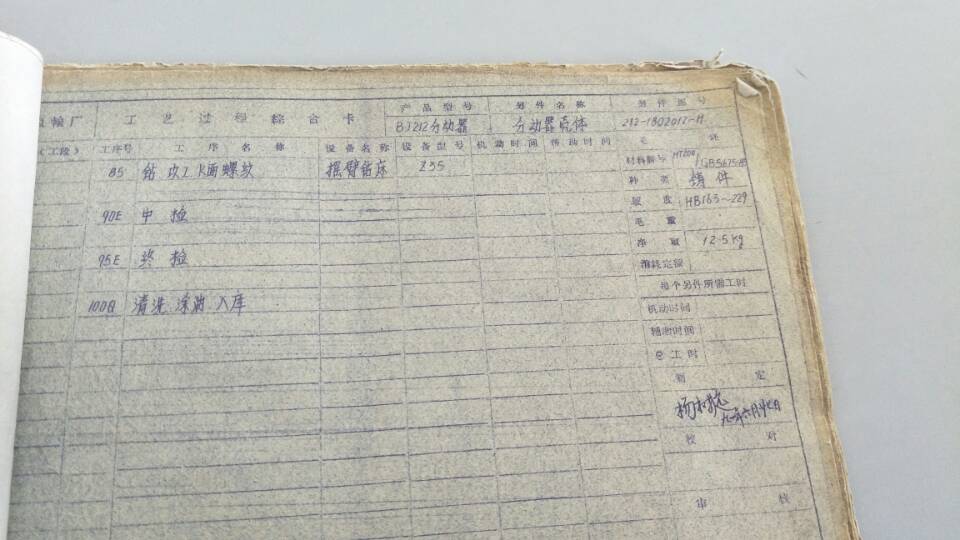 产品型号 另件名称 另件图号
齿轮厂 工艺过程综合卡
BJ212分动器 分动器壳体 212-1802012-A
(工段) 工序号 工序名称 设备名称 设备型号 机动时间 辅助时间 毛坯
85 钻 攻 I.K面螺纹 摇臂钻床 Z35 材料牌号 HT200 GB5675-85
种类 铸件
90E 中检 硬度 HB163~229
毛重
95E 终检 净重 12.5kg
消耗定额
每个另件所需工时
100Q 清洗 涂油 入库 机动时间
辅助时间
总工时
制定
校对
审核